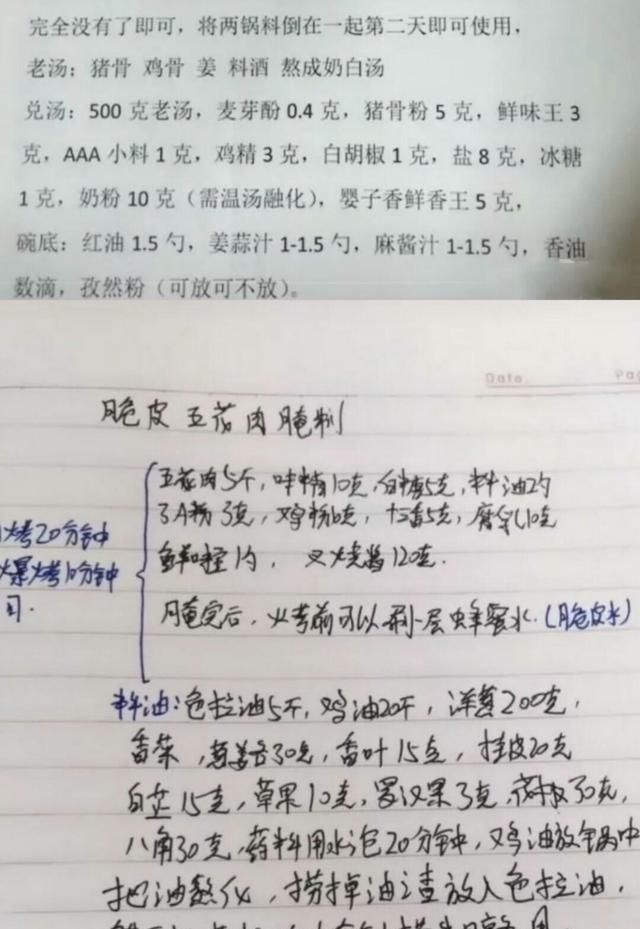 完全没有了即可，将两锅料倒在一起第二天即可使用，
老汤：猪骨 鸡骨 姜 料酒 熬成奶白汤
兑汤：500 克老汤，麦芽酚 0.4 克，猪骨粉 5 克，鲜味王 3
克，AAA 小料 1 克，鸡精 3 克，白胡椒 1 克，盐 8 克，冰糖
1 克，奶粉 10 克（需温汤融化），婴子香鲜香王 5 克，
碗底：红油 1.5 勺，姜蒜汁 1-1.5 勺，麻酱汁 1-1.5 勺，香油
数滴，孜然粉（可放可不放）。
Date
Pag
脆皮 五花肉 腌制
五花肉5斤，味精10克，白糖5克，料油
粉3克，鸡粉6克，十三香5克，腐乳10克
鲜 1勺，叉烧酱120克.
烤20分钟
爆烤10分钟
腌完后，火烤前可以刷一层蜂蜜水.(脆皮水)
料油：色拉油5斤，鸡油20斤，洋葱200克，
香菜，葱姜各30克，香叶15克，桂皮20克
白芷15克，草果10克，罗汉果3克，30克，
八角30克，药料用水泡20分钟，鸡油放锅中
把油熬化，捞掉油渣放入色拉油，